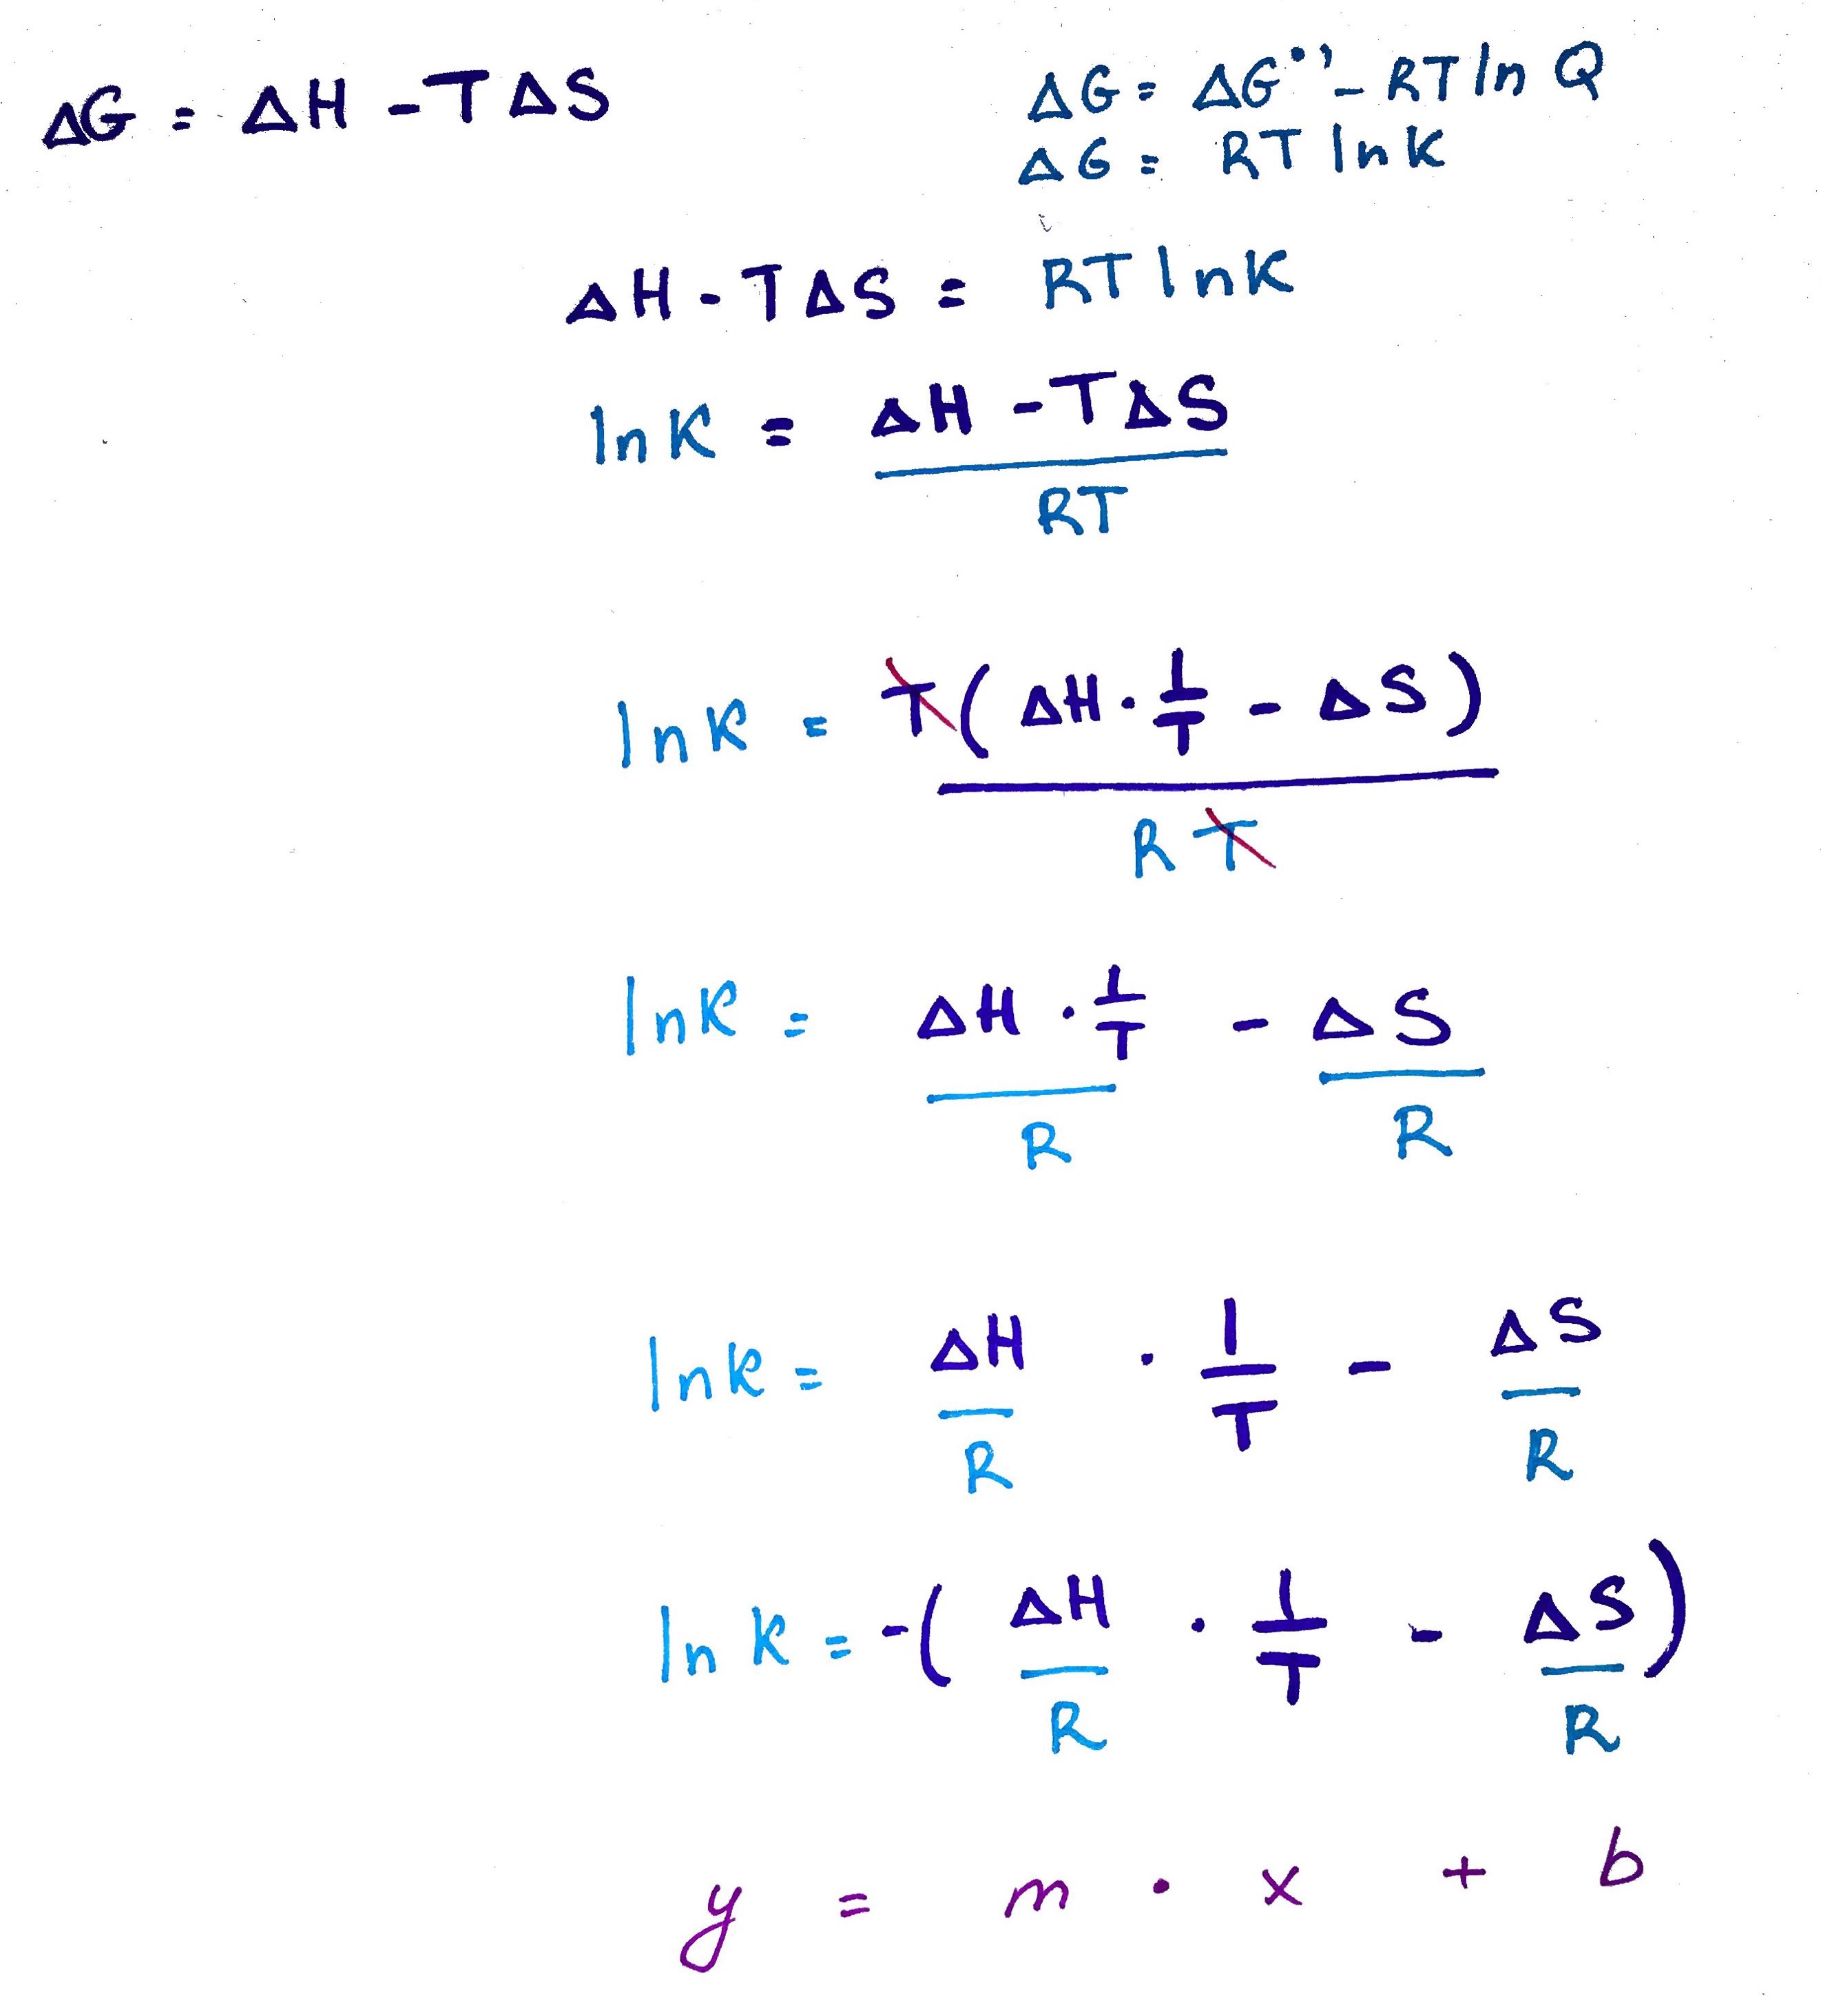 ΔG = ΔH - TΔS
ΔG = ΔG°' - RT ln Q
ΔG = RT ln K
ΔH - TΔS = RT ln K
ln K = (ΔH - TΔS) / RT
ln K = T(ΔH · 1/T - ΔS) / RT
ln K = (ΔH · 1/T) / R - ΔS / R
ln K = ΔH/R · 1/T - ΔS/R
ln K = -(ΔH/R · 1/T - ΔS/R)
y = m · x + b